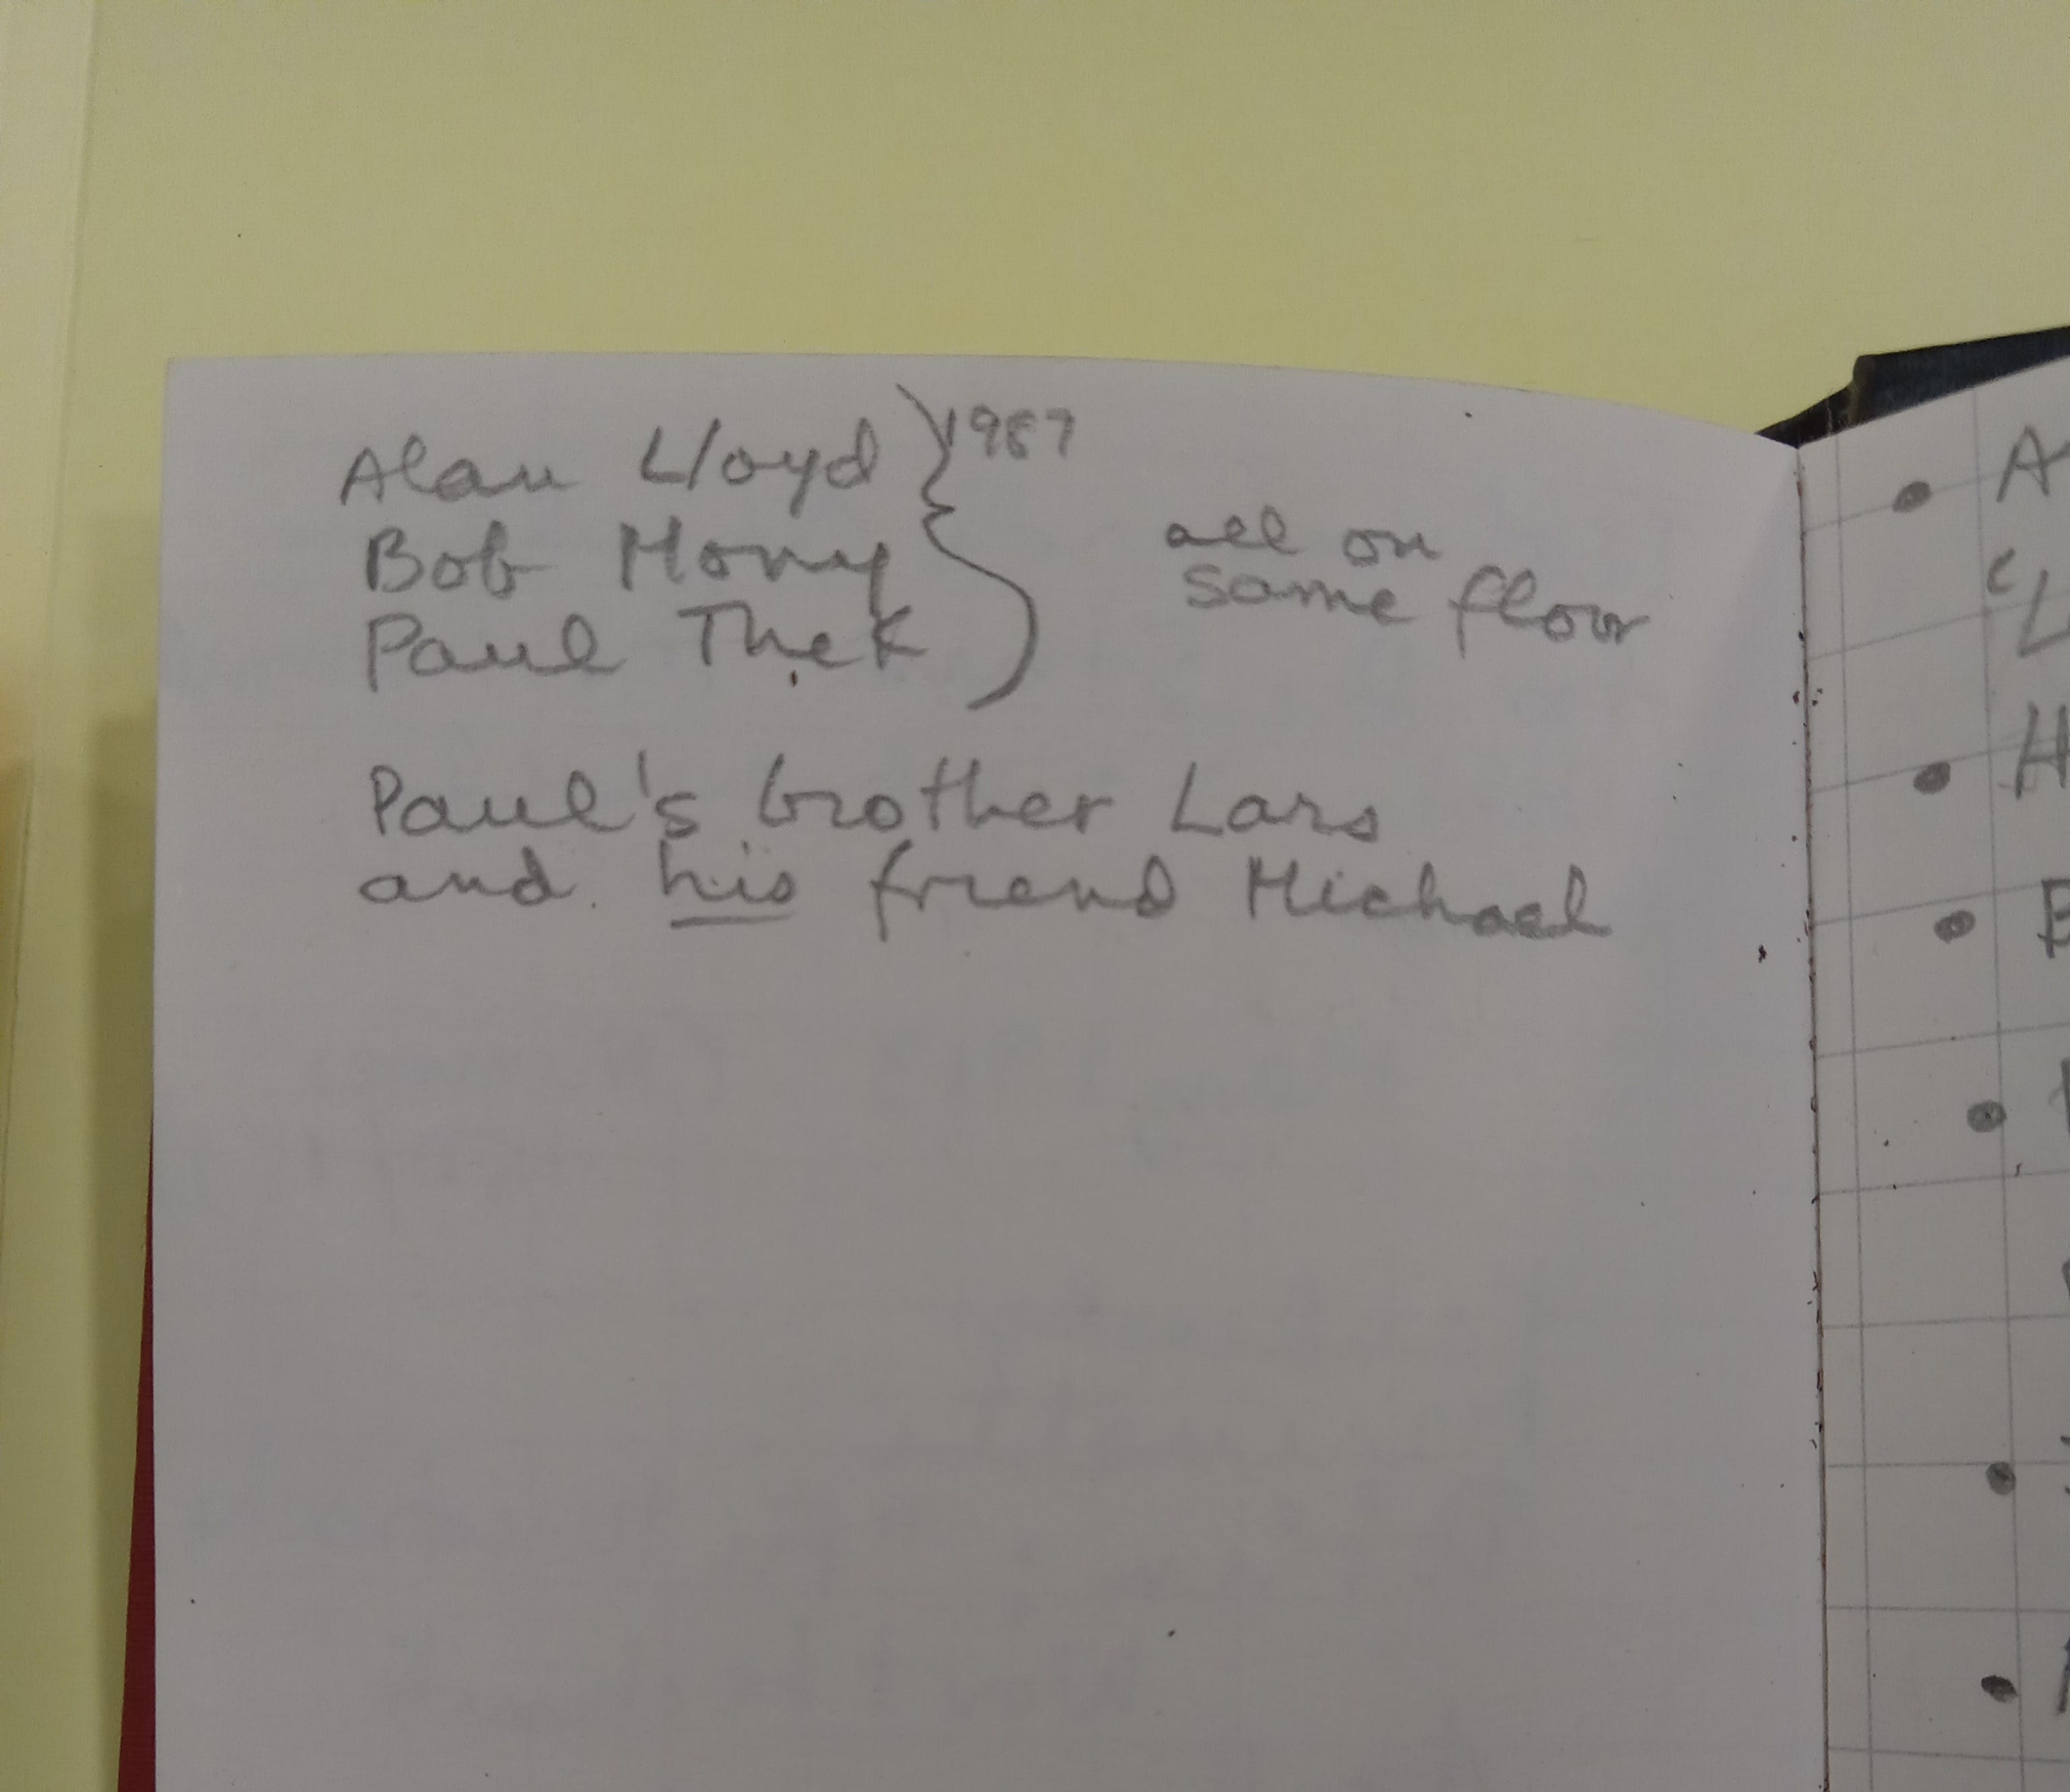 Alan Lloyd } 1987
Bob
Paul Thek
all on
same floor
Paul's brother Lars
and his friend Michael
A
"L
H
B